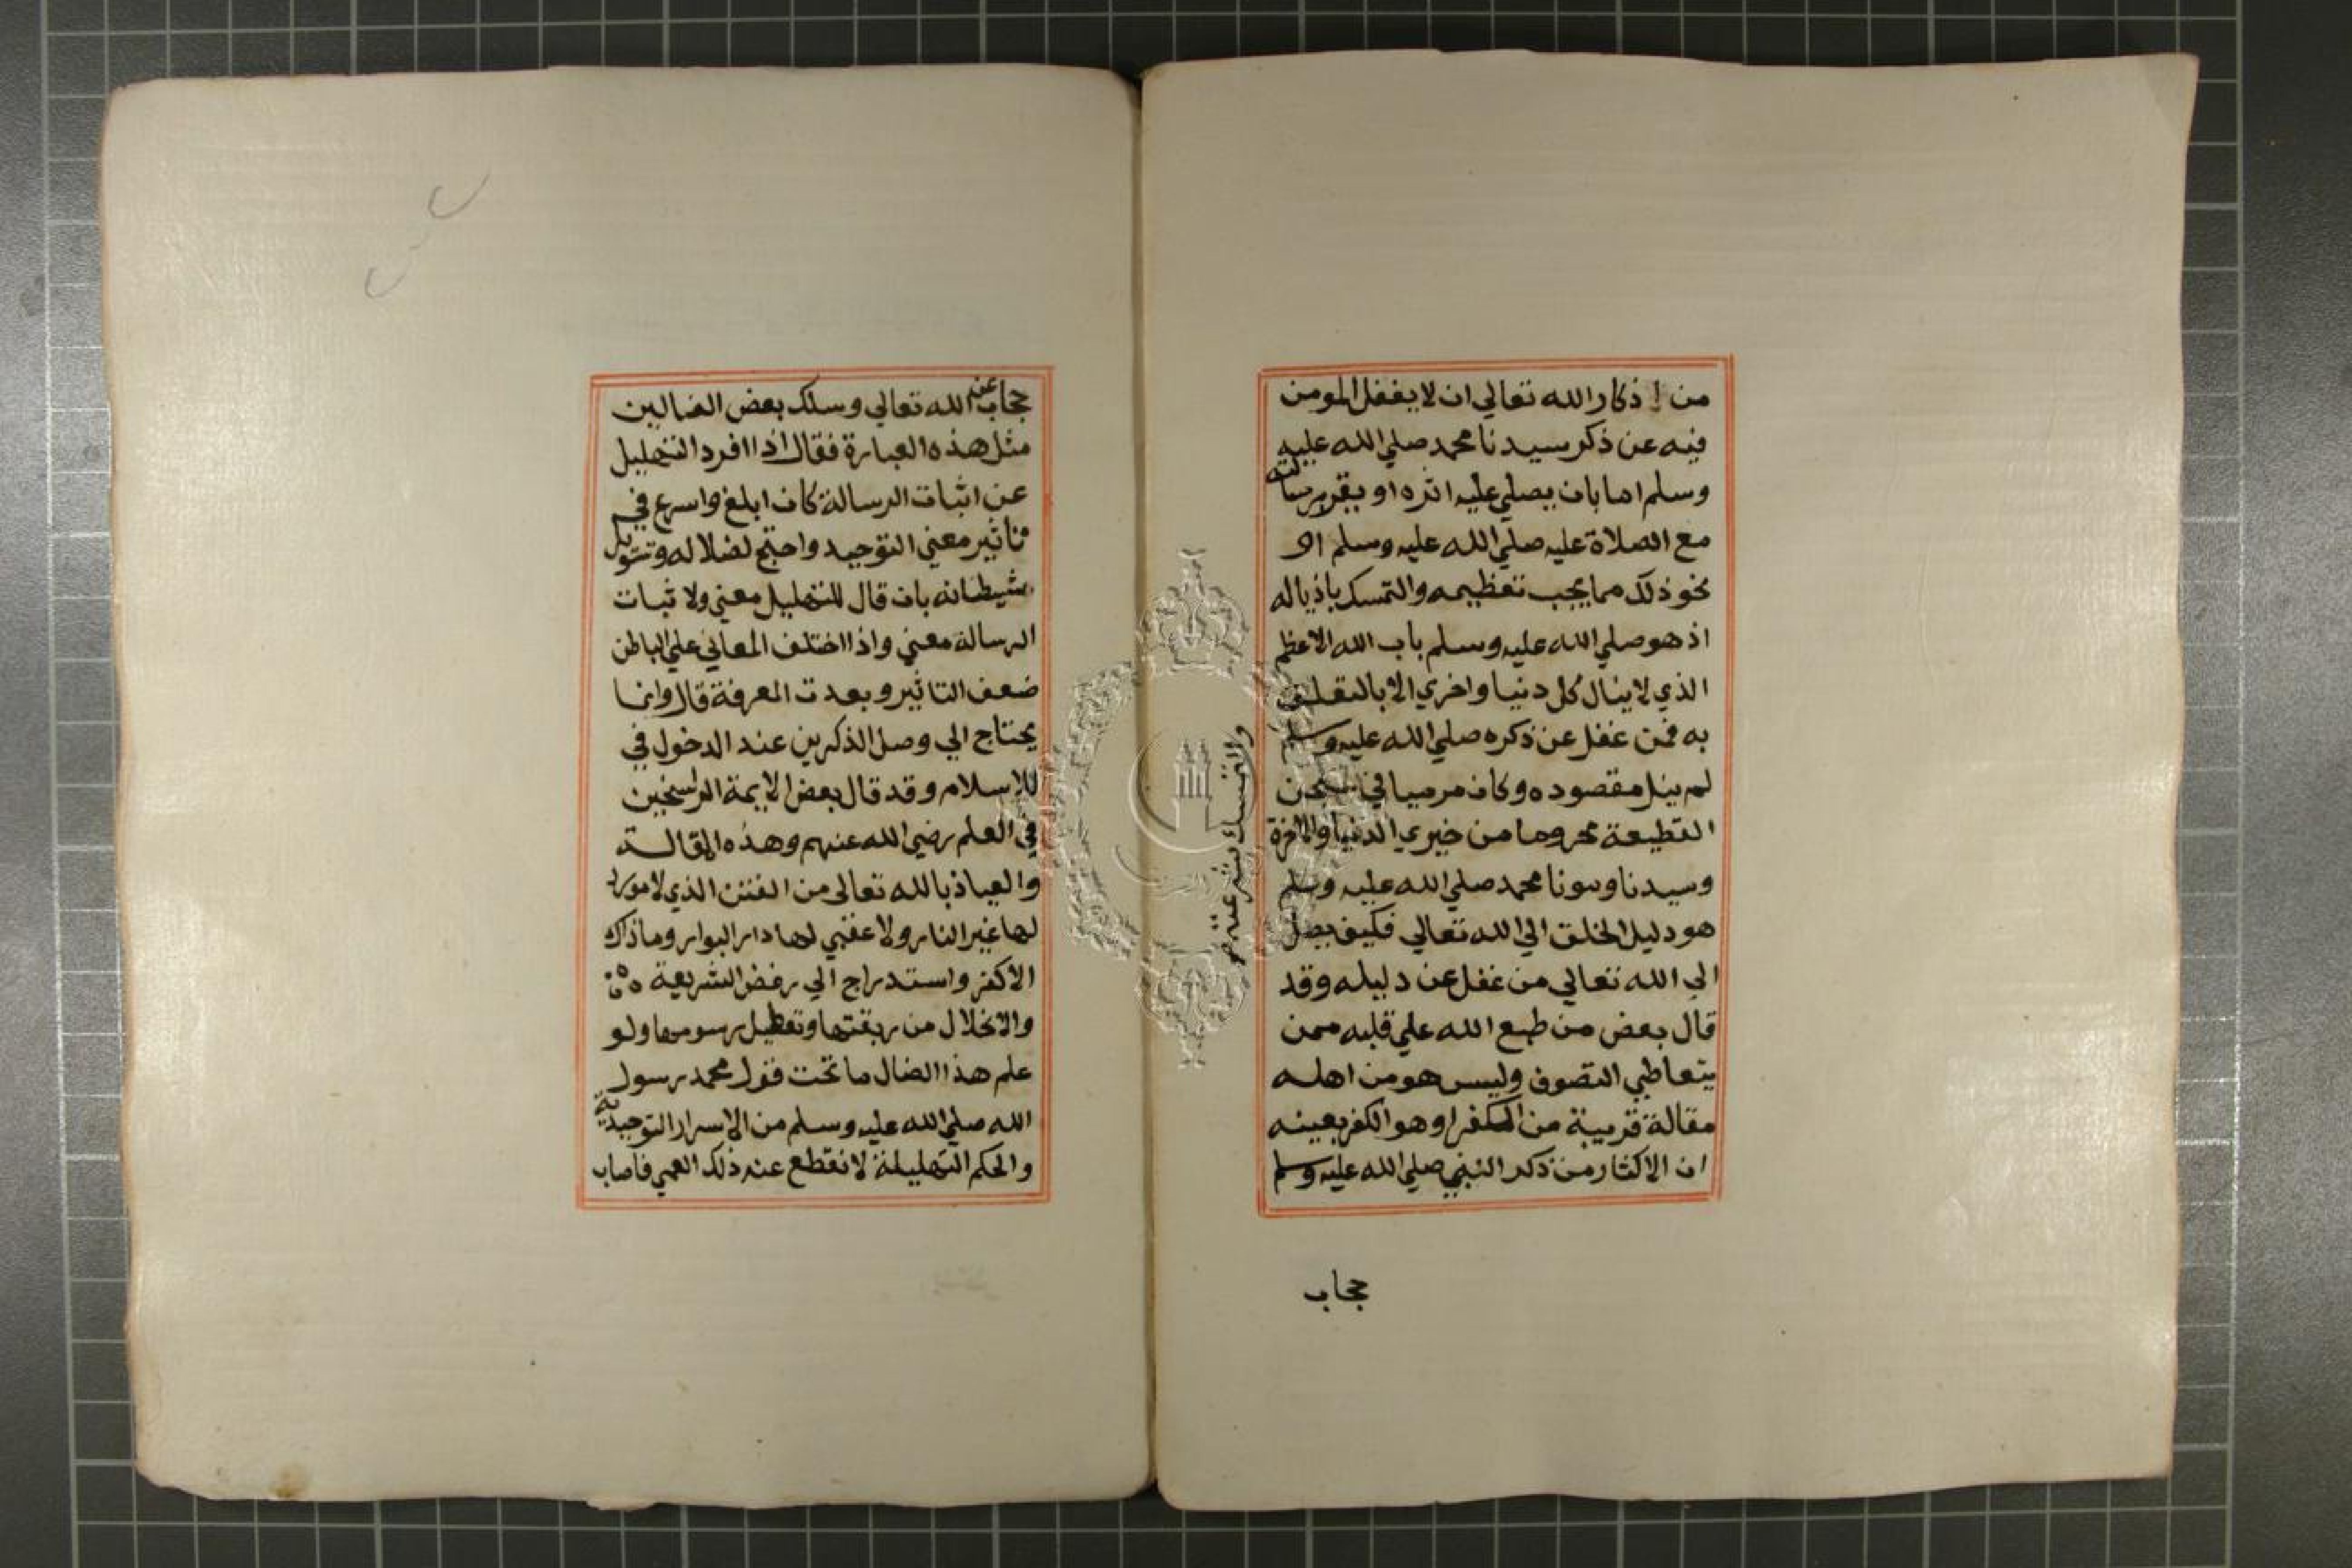 من اذكار الله تعالي ان لا يغفل المومن
فيه عن ذكر سيدنا محمد صلي الله عليه
وسلم اما بان يصلي عليه اثره او يقر برسالته
مع الصلاة عليه صلي الله عليه وسلم او
نحو ذلك مما يجب تعظيمه والتمسك باذياله
اذ هو صلي الله عليه وسلم باب الله الاعظم
الذي لا ينال كل دنيا واخري الا بالتعلق
به فمن غفل عن ذكره صلي الله عليه وسلم
والتمسك بشرعته
لم ينل مقصوده وكان مرميا في سجن
القطيعة محروما من خيري الدنيا والاخرة
وسيدنا ومونا محمد صلي الله عليه وسلم
هو دليل الخلق الي الله تعالي فكيف يصل
الي الله تعالي من غفل عن دليله وقد
قال بعض من طبع الله علي قلبه ممن
يتعاطي التصوف وليس هو من اهله
مقالة قريبة من الكفر او هو الكفر بعينه
ان الاكثار من ذكر النبي صلي الله عليه وسلم
حجاب
حجاب عن الله تعالي وسلك بعض الضالين
مثل هذه العبارة فقال اذا افرد التهليل
عن اثبات الرسالة كان ابلغ واسرع في
تاثير معني التوحيد واحتج لضلاله وتسويل
شيطانه بان قال للتهليل معني ولا ثبات
الرسالة معني واذا اختلف المعاني علي الباطن
ضعف التاثير وبعدت المعرفة قال وانما
يحتاج الي وصل الذكرين عند الدخول في
للاسلام وقد قال بعض الايمة الراسخين
في العلم رضي الله عنهم وهذه المقالة
والعياذ بالله تعالي من الفتن الذي لا مورد
لها غير النار ولا عقبي لها دار البوار وما ذاك
الا كفر واستدراج الي رفض الشريعة
والانخلال من ربقتها وتعطيل رسومها ولو
علم هذا الضال ما تحت قول محمد رسول
الله صلي الله عليه وسلم من الاسرار التوحيدية
والحكم التهليلة لانقطع عنه ذلك العمي فاصاب